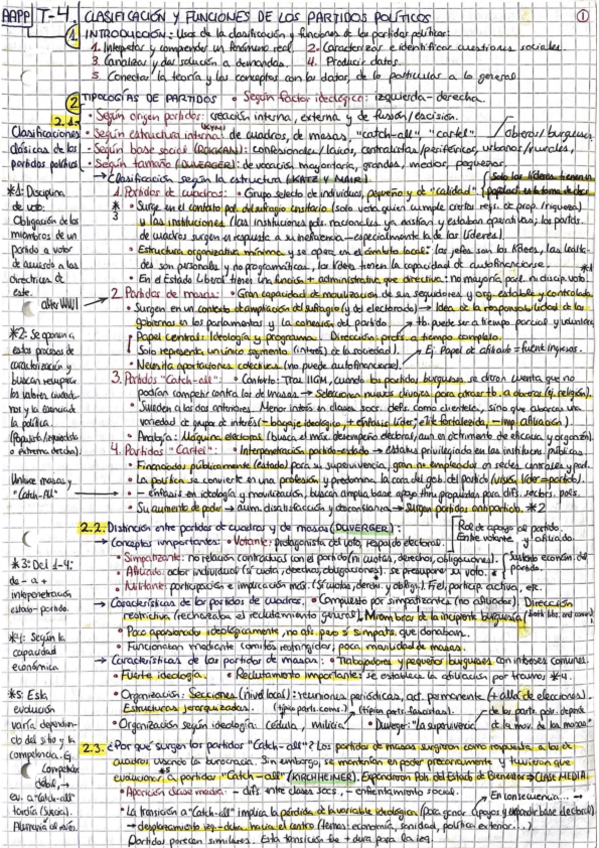 AAPP T-4. CLASIFICACIÓN Y FUNCIONES DE LOS PARTIDOS POLÍTICOS 1
1. INTRODUCCIÓN: Usos de la clasificación y funciones de los partidos políticos:
1. Interpretar y comprender un fenómeno real 2. Caracterizar e identificar cuestiones sociales.
3. Canalizar y dar solución a demandas. 4. Producir datos.
5. Conectar la teoría y los conceptos con los datos, de lo particular a lo general.
2. TIPOLOGÍAS DE PARTIDOS • Según factor ideológico: izquierda-derecha.
2.1. • Según origen partidos: creación interna, externa y de fusión/escisión.
Clasificaciones clásicas de los partidos políticos
• Según estructura interna: de cuadros, de masas, "catch-all", "cartel".
obreros/burgueses
• Según base social (ROKKAN): confesionales/laicos, centralistas/periféricos, urbanos/rurales,
• Según tamaño (DUVERGER): de vocación mayoritaria, grandes, medios, pequeños.
→ Clasificación según la estructura (KATZ Y MAIR)
Solo los líderes tienen
*1: Disciplina de voto: Obligación de los miembros de un partido a votar de acuerdo a las directrices de este.
1. Partidos de cuadros: • Grupo selecto de individuos, pequeño y de "calidad"
*3
• Surge en el contexto del sufragio censitario (solo vota quien cumple ciertos reqs. de prop./riqueza)
y las instituciones (las instituciones pols. nacionales ya existían y estaban operativas; los partds.
de cuadros surgen en respuesta a su ineficiencia – especialmente la de los líderes).
• Estructura organizativa mínima y se opera en el ámbito local: los jefes son los líderes, las lealta-
des son personales y no programáticas, los líderes tienen la capacidad de autofinanciarse.
• En el Estado Liberal tienen una función + administrativa que directiva: no mayoría parl. ni discip. voto. *1
after WWI
2. Partidos de masas: • Gran capacidad de movilización de sus seguidores y org. estable y controlada.
• Surgen en un contexto de ampliación del sufragio (y del electorado) → Idea de la responsabilidad de los
gobiernos en los parlamentos y la cohesión del partido
tb. puede ser a tiempo parcial y voluntario
• Papel central: Ideología y programa. Dirección: profs. a tiempo completo.
• Solo representa un único segmento (interés) de la sociedad).
• Necesita aportaciones colectivas (no puede autofinanciarse).
Ej. Papel de afiliado = fuente ingresos.
*2: Se oponen a estos procesos de cartelización y buscan recuperar los valores ciudada-nos y la esencia de la política. (Populista/izquierdista o extrema derecha).
3. Partidos "Catch-all": • Contexto: Tras IIGM, cuando los partidos burgueses se dieron cuenta que no
podían competir contra los de masas → Seleccionan nuevos clivajes para atraer tb. a obreros (ej. religión).
• Suceden a los dos anteriores. Menor interés en clases socs. defs. como clientelas, sino que abarcan una
variedad de grupos de interés (– bagaje ideológico, + énfasis líder; elite fortalecida, – imp. afiliación).
• Analogía: Máquina electoral (busca el máx. desempeño electoral, aun en detrimento de eficacia y organizn).
4. Partidos "Cartel": • Interpenetración partido-estado → estatus privilegiado en las institucs. públicas.
• Financiados públicamente (estado) para su supervivencia, gran nº empleados en sedes centrales y parl.
Unifica masas y "Catch-All"
• La política se convierte en una profesión y predomina la cara del gob. del partido (visión líder=partido).
• – énfasis en ideología y movilización, buscan amplia base apoyo thru propuestas para difs. sectors. pobs.
• Su aumento de poder → aum. disatisfacción y desconfianza → Surgen partidos antipartido. *2
2.2. Distinción entre partidos de cuadros y de masas (DUVERGER):
→ Conceptos importantes: • Votante: Protagonista del voto, respaldo electoral.
Rol de apoyo al partido. Entre votante y afiliado.
• Simpatizante: no relación contractual con el partido (ni cuotas, derechos, obligaciones).
• Afiliado: actor individual (sí cuota, derechos, obligaciones). se presupone su voto.
Sustento económ. del partido.
• Militante: participación e implicación máx. (Sí cuotas, derchs. y obligs.). Fiel, particip. activa, etc.
*3: Del 1-4: de – a + interpenetración estado-partido.
→ Características de los partidos de cuadros. • Compuesto por simpatizantes (no afiliados). Dirección
restrictiva (rechazaba el reclutamiento general). Miembros de la incipiente burguesía (both libs. and consvs).
• Poco apasionado ideológicamente, no afil. pero sí simpats. que donaban.
• Funcionaban mediante comités restringidos; poca movilidad de masas.
*4: Según la capacidad económica.
→ Características de los partidos de masas: • Trabajadores y pequeños burgueses con intereses comunes.
• Fuerte ideología. • Reclutamiento importante: se establece la afiliación por tramos *4.
*5: Esta evolución varía dependien-do del sitio y la competencia. Ej. Competición débil, → ev. a "Catch-all" tardía (Suecia). Alemania al revés.
• Organización: Secciones (nivel local): reuniones periódicas, act. permanente (+ allá de elecciones).
Estructuras jerarquizadas.
• Organización según ideología: Cédula (típica parts. coms.), milicia (típica partds. fascistas).
• Duverger: "La supervivencia de los parts. pols. depende de la mov. de las masas"
2.3. ¿Por qué surgen los partidos "Catch-all"? Los partidos de masas surgieron como respuesta a los de
cuadros usando la burocracia. Sin embargo, se mantenían en poder precariamente y tuvieron que
evolucionar *5 a partidos "Catch-all" (KIRCHHEIMER). Expandieron Pols. del Estado de Bienestar → CLASE MEDIA.
• Aparición clase media: – difs. entre clases socs., – enfrentamiento social.
En consecuencia... →
• La transición a "Catch-all" implica la pérdida de la variable ideológica (para ganar apoyos y expandir base electoral)
→ desplazamiento izq.-dcha. hacia el centro (temas: economía, sanidad, política exterior...)
Partidos parecen similares. Esta transición fue + dura para la izq.